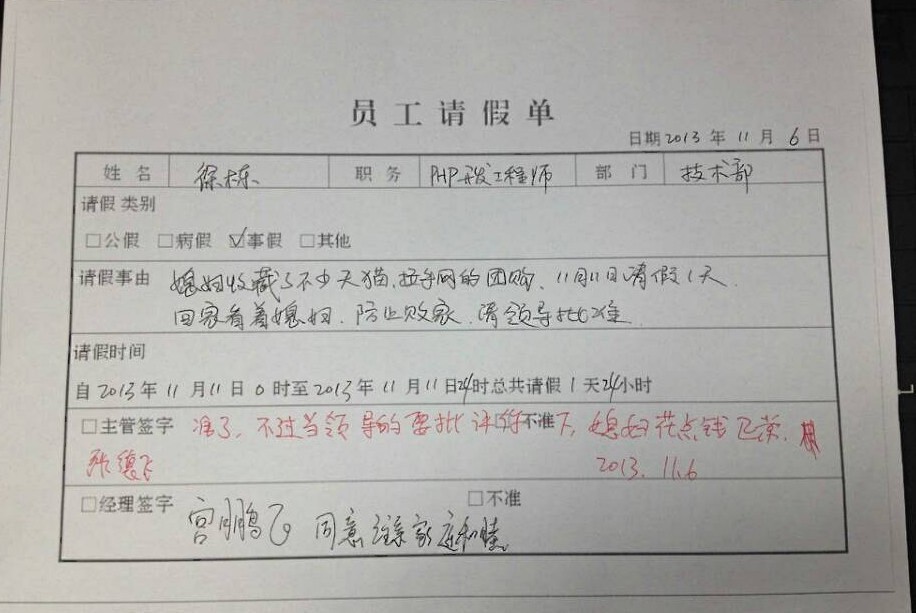 员工请假单
日期 2013 年 11 月 6 日
姓名 徐栋 职务 PHP开发工程师 部门 技术部
请假 类别
□公假 □病假 ☑事假 □其他
请假事由 媳妇收藏了不少天猫、拉手网的团购、11月11日请假1天
回家看着媳妇、防止败家、请领导批准
请假时间
自 2013 年 11 月 11 日 0 时至 2013 年 11 月 11 日 24 时总共请假 1 天 24 小时
□主管签字 准了、不过当领导的要批评你 □不准 下，媳妇花点钱 光荣、
张德飞 2013.11.6
□经理签字 □不准
宫鹏飞 同意 注意家庭和睦。